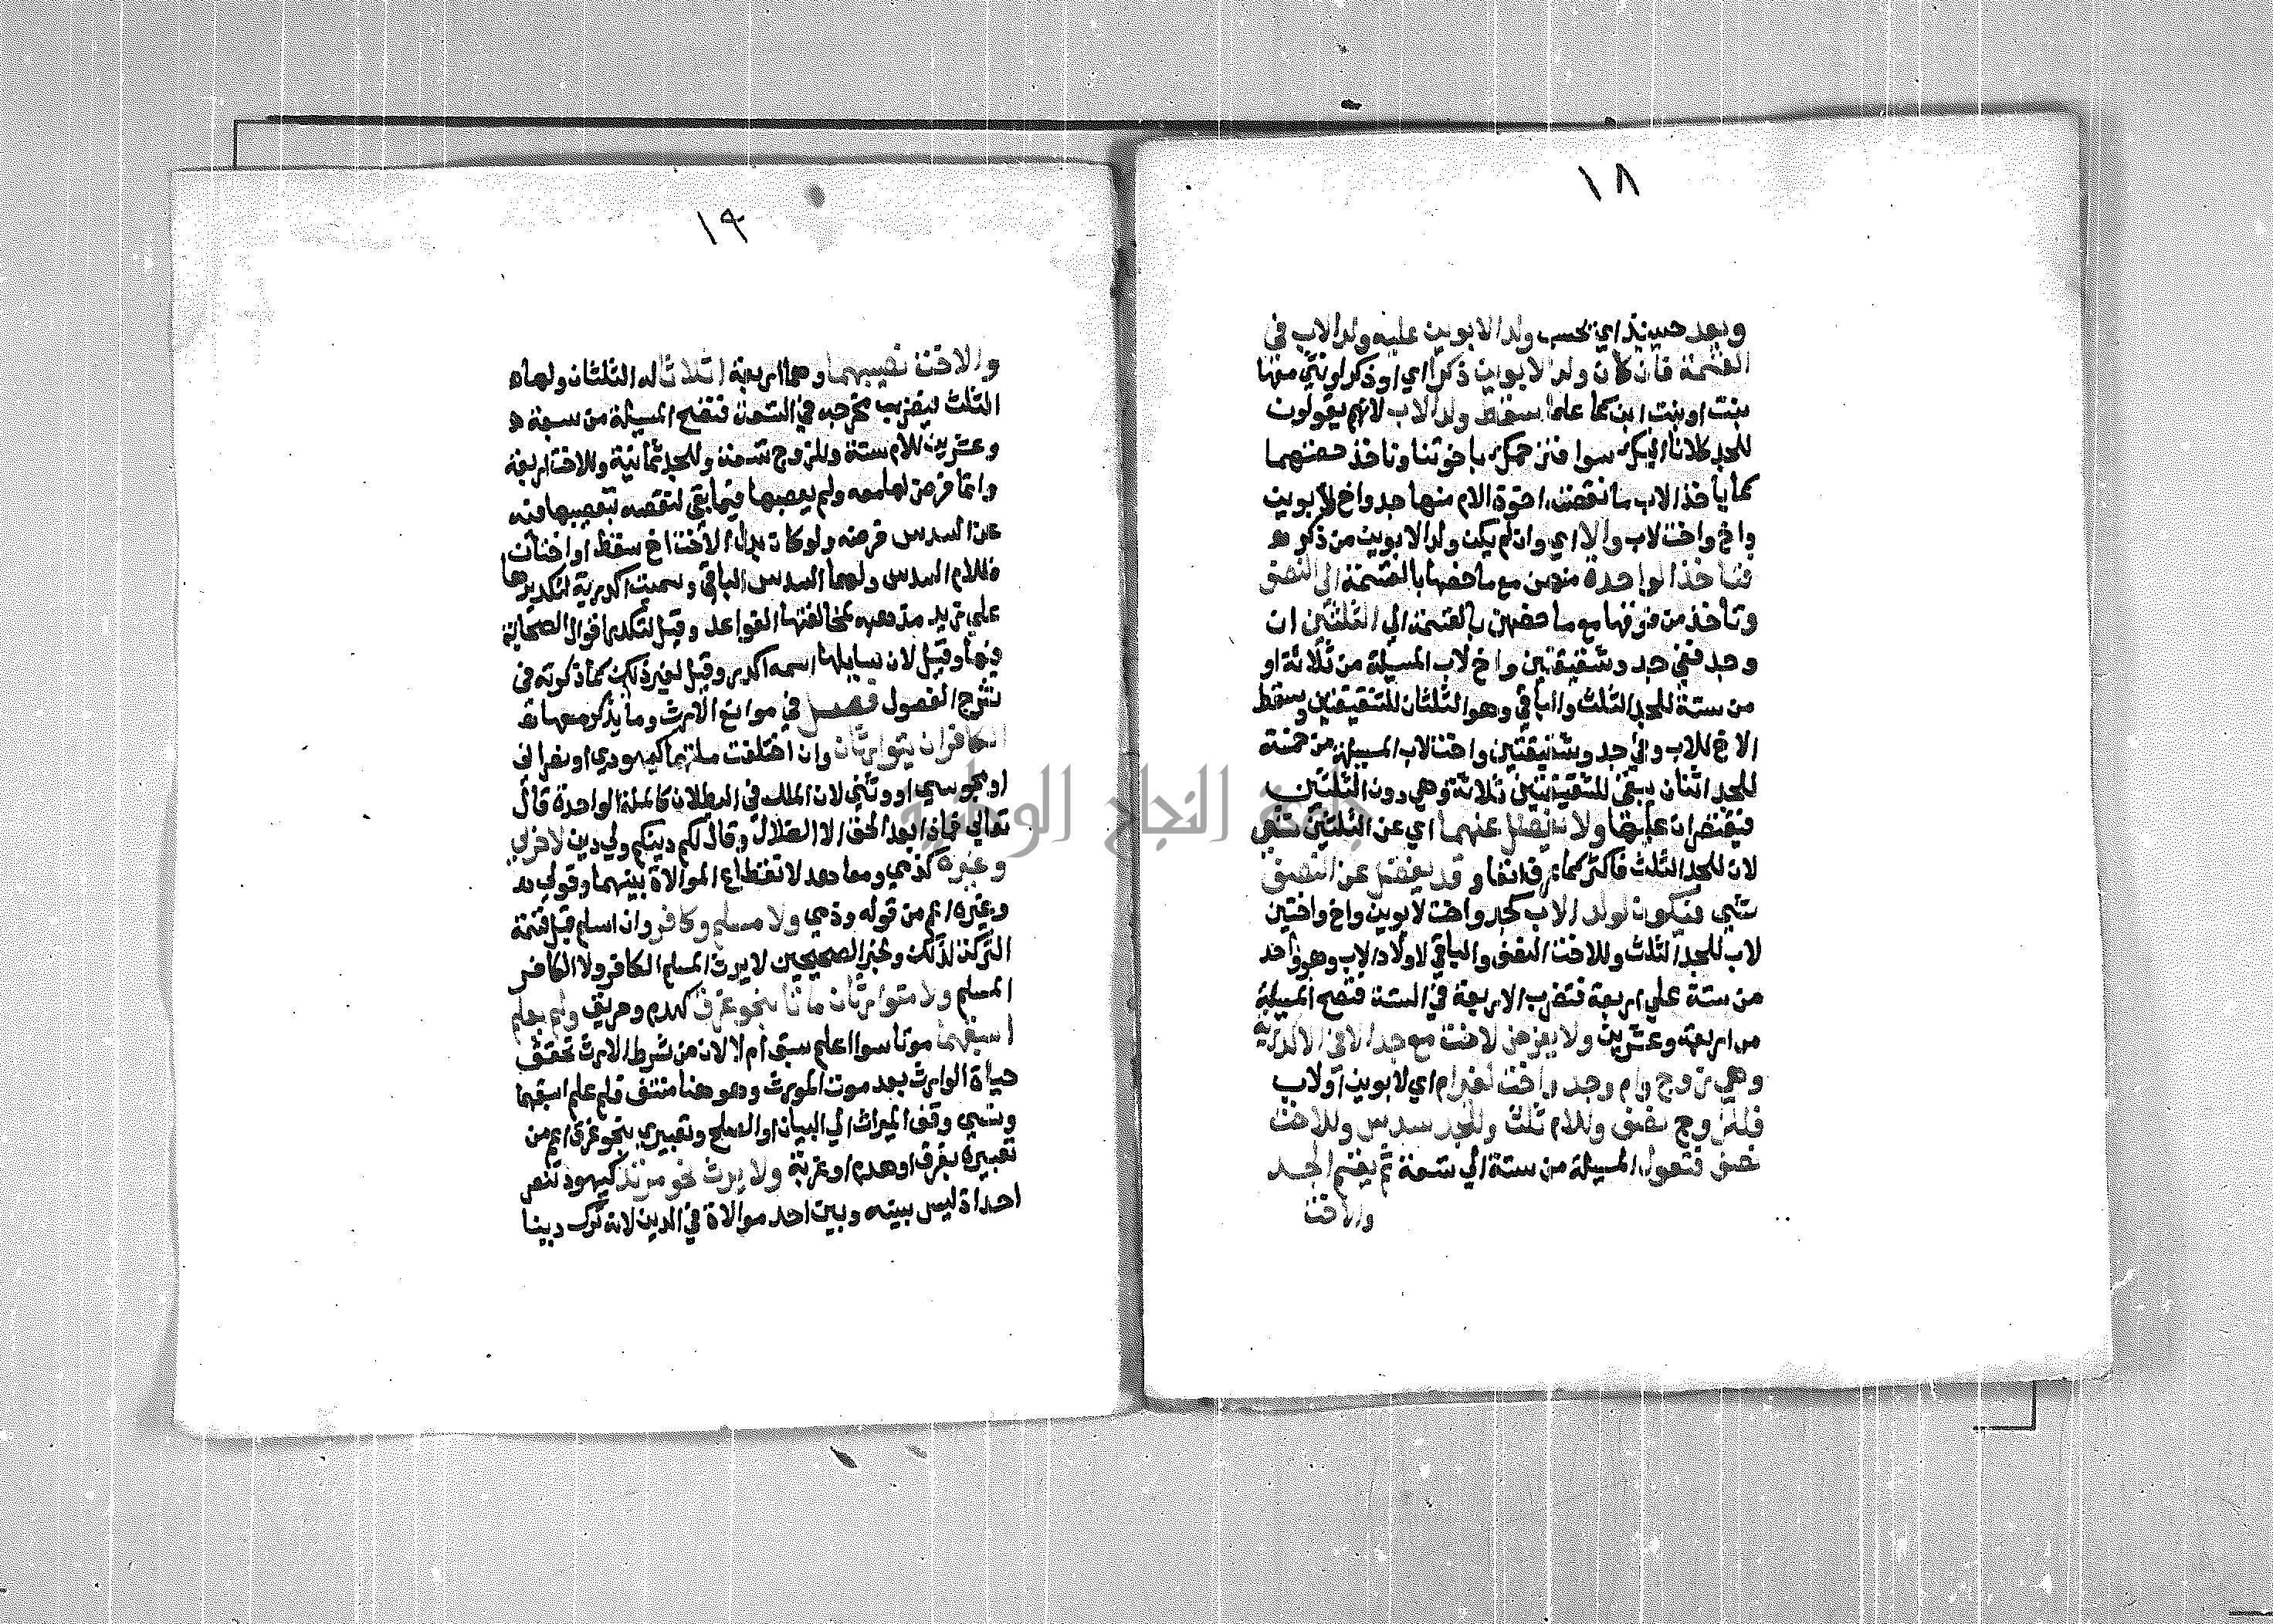 ١٨
ويعد حينيذ اي يحسب ولد الابوين عليه ولد الاب في
القسمة فان كان ولد الابوين ذكرا اي او ذكر او نثي معها
بنت او بنت ابن كما علما سقط ولد الاب لانهم يقولون
للجد كلانا اليك سوا فنزحمك باخوتنا وناخذ حصتهما
كما ياخذ الاب ما نقصته اخوة الام منها جد واخ لابوين
واخ واخت لاب والا اي وان لم يكن ولد الابوين من ذكر
فتاخذ الواحدة منهن مع ما خصها بالقسمة الى النصف
وتاخذ من فوقها مع ما خصهن بالقسمة الي الثلثين ان
وجد ففي جد وشقيقتين واخ لاب المسيلة من ثلاثة او
من ستة للجد الثلث والباقي وهو الثلثان للشقيقتين وسقط
الاخ للاب وفي جد وشقيقتين واخت لاب المسيلة من خمسة
للجد اثنان يبقى للشقيقتين ثلاثة وهي دون الثلثين
فيقتصران عليها ولا يفضل عنهما اي عن الثلثين شي
لان للجد الثلث فاكثر كما عرف انفا وقد يفضل عن النصف
شي فيكون لولد الاب كجد واخت لابوين واخ واختين
لاب للجد الثلث وللاخت النصف والباقي لاولاد الاب وهو واحد
من ستة علي اربعة فتضرب الاربعة في الستة فتصح المسيلة
من اربعة وعشرين ولا يفرض لاخت مع جد الا في الاكدرية
وهي زوج وام وجد واخت لغير ام اي لابوين او لاب
فللزوج نصف وللام ثلث وللجد سدس وللاخت
نصف فتعول المسيلة من ستة الي تسعة ثم يقسم الجد
والاخت
١٩
والاخت نصيبهما وهما اربعة اثلاثا له الثلثان ولها
الثلث فيضرب مخرجه في التسعة فتصح المسيلة من سبعة
وعشرين للام ستة وللزوج تسعة وللجد ثمانية وللاخت اربعة
وانما فرض لها معه ولم يعصبها فيما بقي لنقصه بتعصيبها فيه
عن السدس فرضه ولو كان بدل الاخت اخ سقط او اختان
فللام السدس ولهما السدس الباقي وسميت اكدرية لتكديرها
علي زيد مذهبه لمخالفتها القواعد وقيل لتكدر اقوال الصحابة
فيها وقيل لان سايلها اسمه اكدر وقيل لغير ذلك كما ذكرته في
شرح الفصول فصل في موانع الارث وما يذكر معها
الكافران يتوارثان وان اختلفت ملتهما كيهودي او نصراني
او مجوسي او وثني لان الملل في البطلان كالملة الواحدة قال
تعالي فماذا بعد الحق الا الضلال وقال لكم دينكم ولي دين لا حربي
وغيره كذمي ومعاهد لانقطاع الموالاة بينهما وقولي
وغيره اعم من قوله وذمي ولا مسلم وكافر وان اسلم قبل قسمة
التركة لذلك ولخبر الصحيحين لا يرث المسلم الكافر ولا الكافر
المسلم ولا متوارثان ماتا بنحو غرق كهدم وحريق ولم يعلم
اسبقهما موتا سوا اعلم سبق ام لا لان من شرط الارث تحقق
حياة الوارث بعد موت المورث وهو هنا منتف فلم علم اسبقهما
ونسي وقف الميراث الي البيان او الصلح وتعبيري بنحو غرق اعم من
تعبيره بغرق او هدم او غربة ولا يرث نحو مرتد كيهود تنصر
احدا اذ ليس بينه وبين احد موالاة في الدين لانه ترك دينا
جامعة النجاح الوطنية